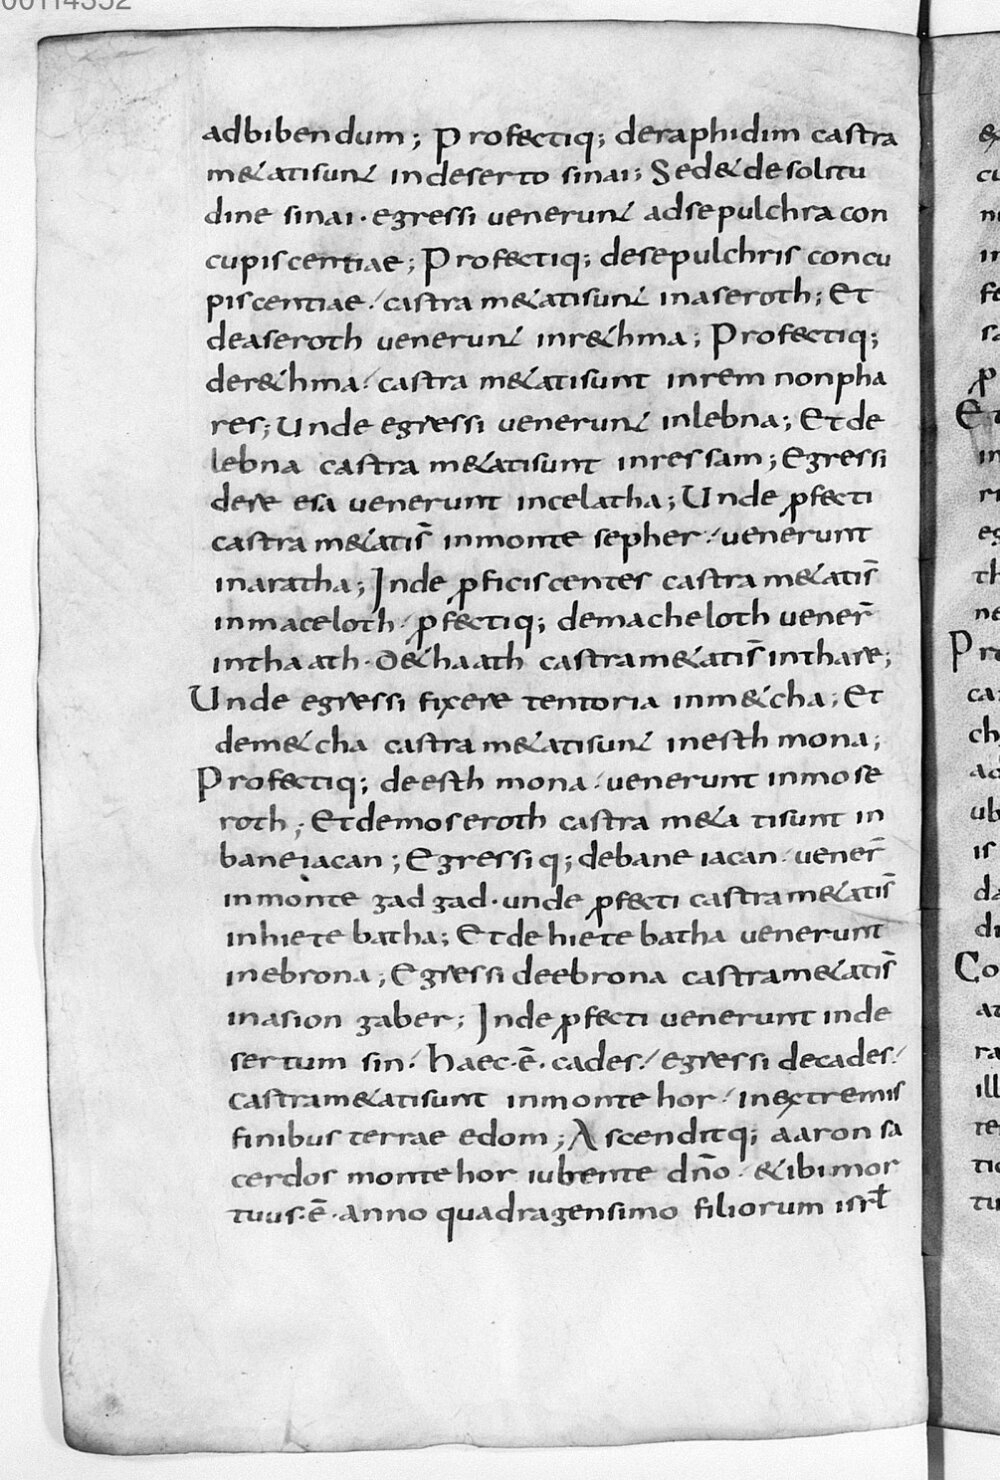 00114352
adbibendum; Profectiq; deraphidim castra
m&atisunt indeserto sinai; Sed&desolitu
dine sinai· egressi uenerunt adsepulchra con
cupiscentiae; Profectiq; desepulchris concu
piscentiae / castram&atisunt inaseroth; Et
deaseroth uenerunt inr&hma; Profectiq;
der&hma / castra m&atisunt inrem nonpha
res; Unde egressi uenerunt inlebna; Et de
lebna castra m&atisunt inressam; Egressi
dere esa uenerunt incelatha; Unde ꝓfecti
castra m&atis̄ inmonte sepher / uenerunt
inaratha; Inde ꝓficiscentes castra m&atis̄
inmaceloth / ꝓfectiq; demacheloth uener̄
inthaath· d&haath castram&atis̄ inthare;
Unde egressi fixere tentoria inm&cha; Et
dem&cha castra m&atisunt inesth mona;
Profectiq; deesth mona / uenerunt inmose
roth; Etdemoseroth castra m&a tisunt in
baneiacan; Egressi q; debane iacan / uener̄
inmonte gad gad· unde ꝓfecti castram&atis̄
inhiete batha; Et de hiete batha uenerunt
inebrona; Egressi deebrona castram&atis̄
inasion gaber; Inde ꝓfecti uenerunt inde
sertum sin / haec·ē· cades / egressi decades /
castram&atisunt inmonte hor / inextremis
finibus terrae edom; Ascenditq; aaron sa
cerdos monte hor iubente dn̄o / &ibi mor
tuus·ē· anno quadragensimo filiorum isrł